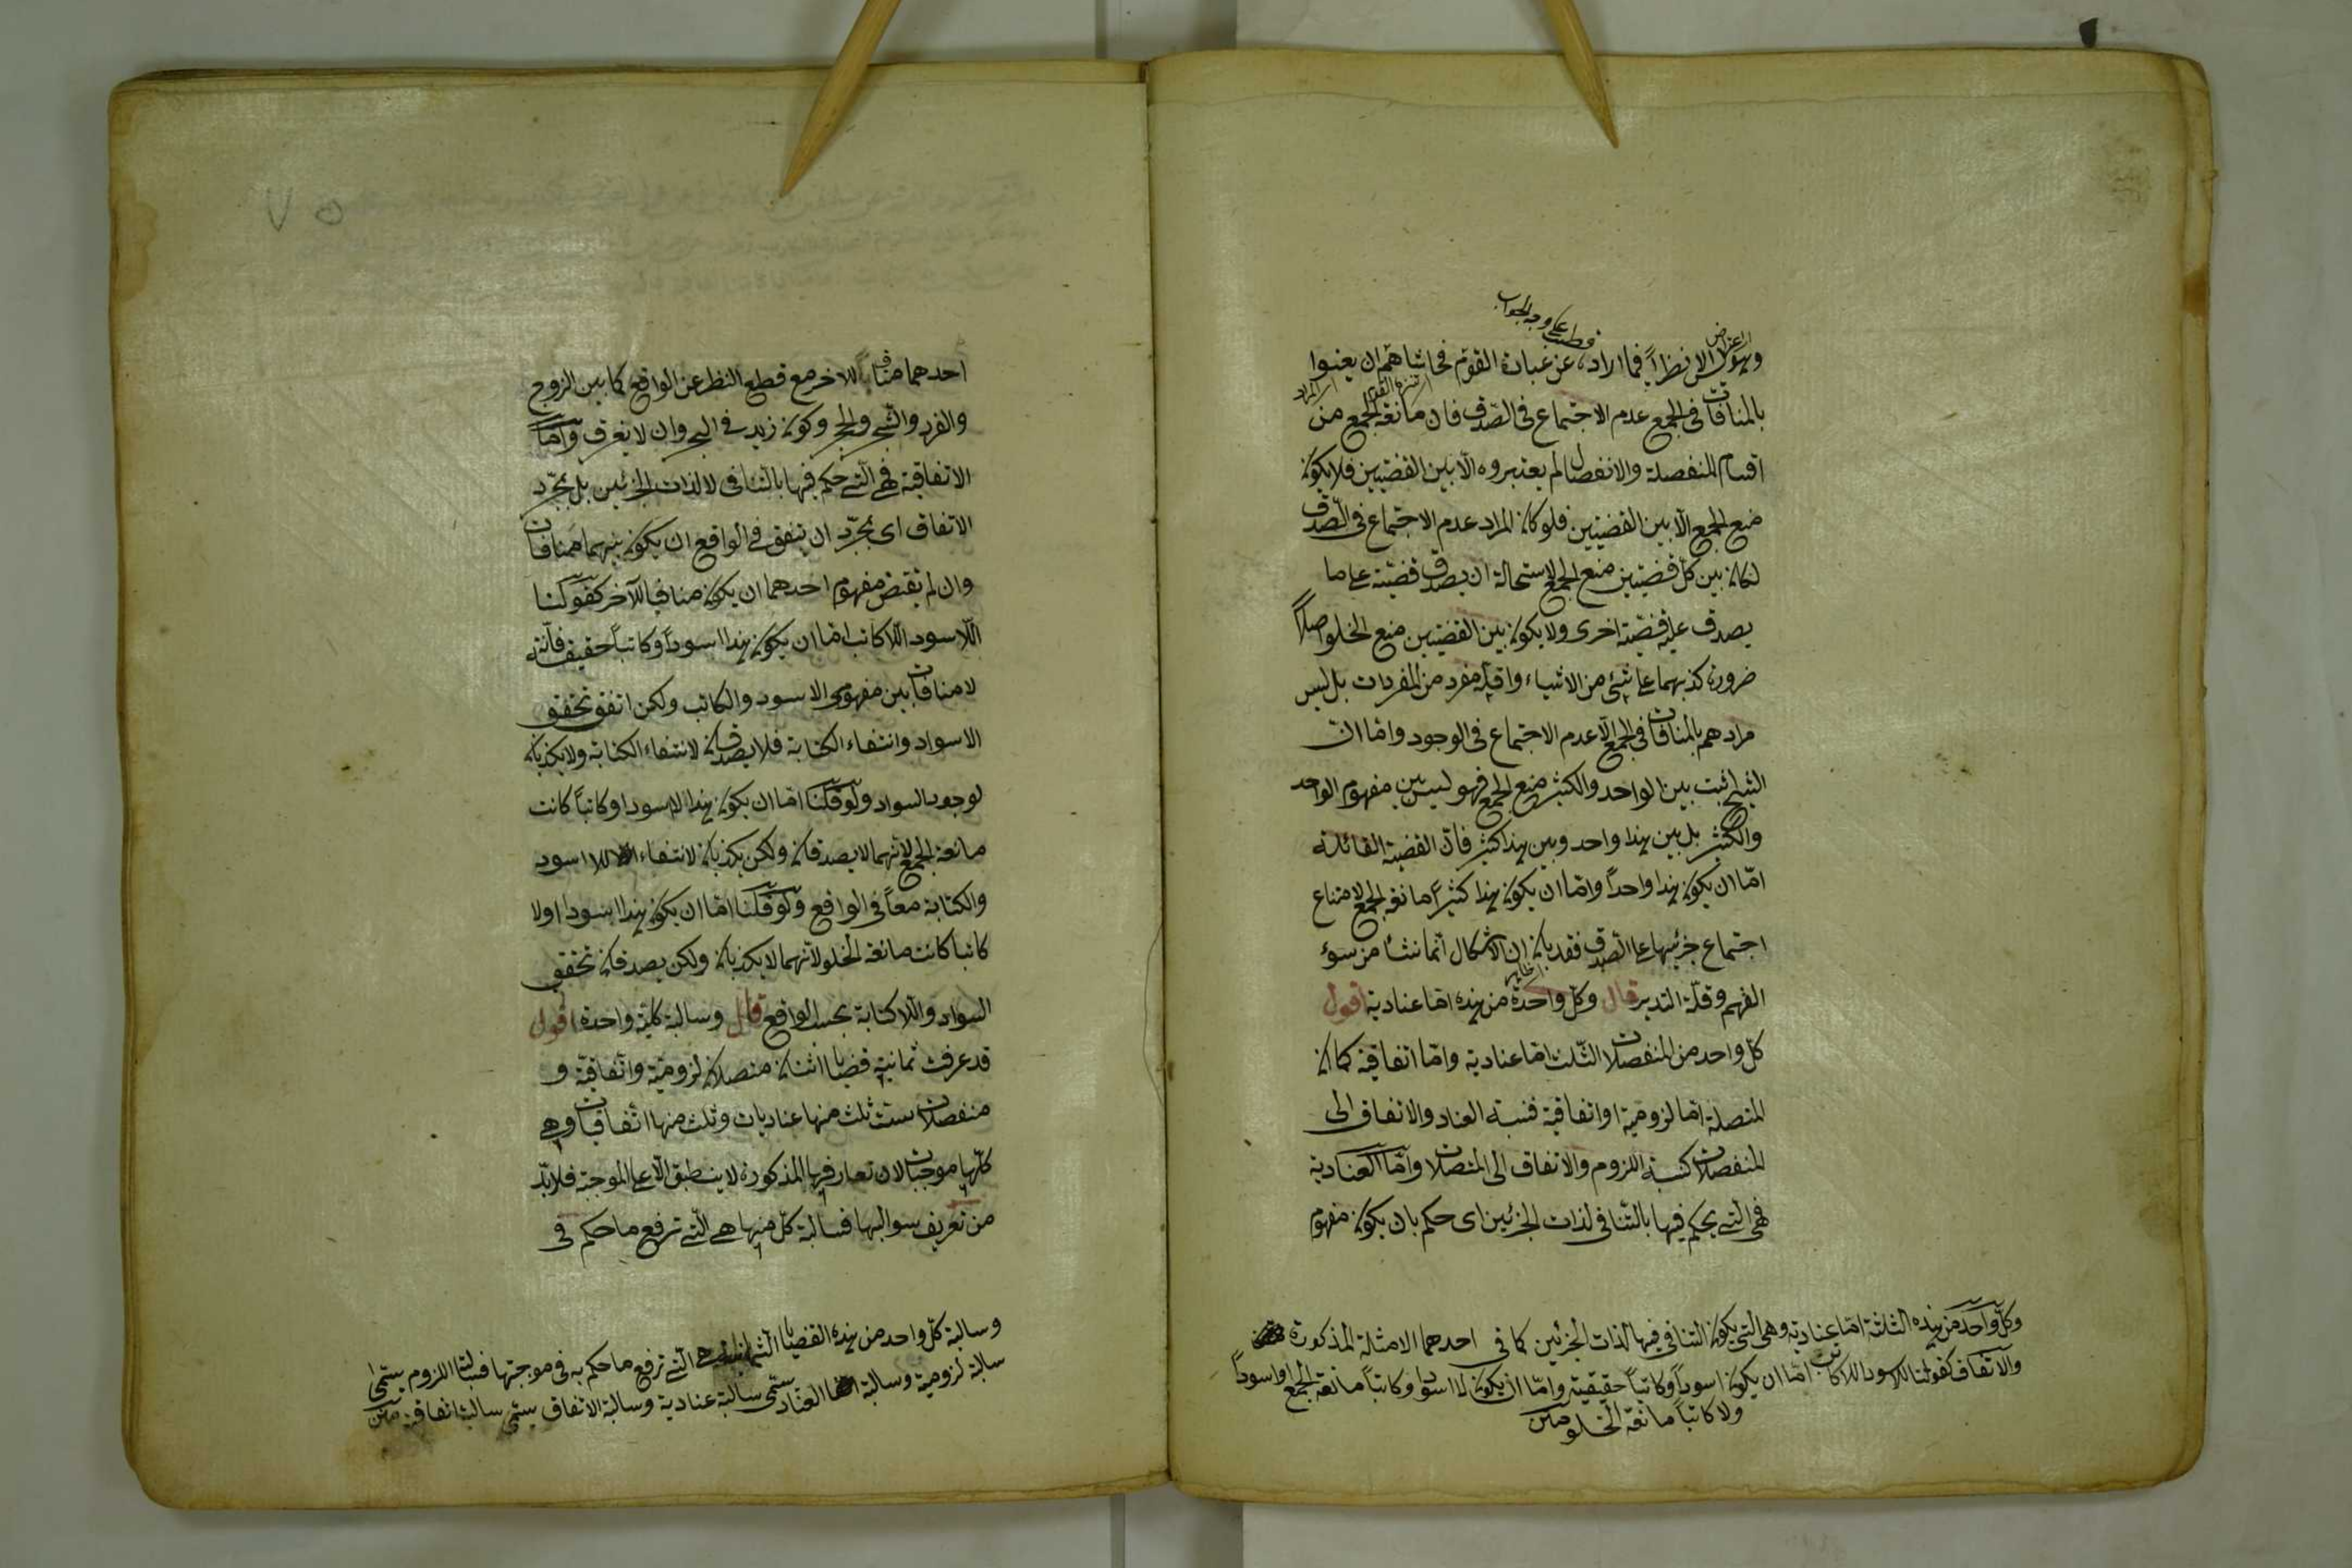 اى اعتراض
قطب على وجه الجواب
وهو ليس الا نظراً فيما اراده عن عبارة القوم فحاشاهم ان يعنوا
اى تنزه القوم
اى المراد
بالمنافات فى الجمع عدم الاجتماع فى الصّدق فان مانعة الجمع من
اقسام المنفصلة والانفصال لم يعتبروه الّا بين القضيتين فلا يكون
منع الجمع الّا بين القضيتين فلو كان المراد عدم الاجتماع فى الصّدق
لكان بين كلّ قضيتين منع الجمع لاستحالة ان يصدق قضيّة على ما
يصدق عليه قضيّة اخرى ولا يكون بين القضيتين منع الخلو اصلاً
ضرورة كذبهما على شئ من الاشياء واقله مفرد من المفردات بل ليس
مرادهم بالمنافات فى الجمع الّا عدم الاجتماع فى الوجود وامّا انّ
الشيخ اثبت بين الواحد والكثير منع الجمع فهو ليس بين مفهوم الواحد
والكثير بل بين هذا واحد وبين هذا كثير فانّ القضية القائلة
امّا ان يكون هذا واحداً وامّا ان يكون هذا كثيراً مانعة الجمع لامتناع
اجتماع جزئيها على الصدق فقد بان ان الاشكال انّما نشأ من سوء
الفهم وقلّة التدبر قال وكلّ واحدة من هذه امّا عنادية اقول
كلّ واحد من المنفصلات الثّلث امّا عنادية وامّا اتفاقية كما ان
المتصلة امّا لزومية او اتفاقية فنسبة العناد والاتفاق الى
المنفصلات كنسبة اللزوم والاتفاق الى المتصلات وامّا العنادية
فهى الّتى يحكم فيها بالتّنافى لذات الجزئين اى حكم بان يكون مفهوم
وكلّ واحد من هذه الثلثة امّا عنادية وهى التى يكون التنافى فيها لذات الجزئين كما فى احدهما الامثلة المذكورة
والاتفاق كقولنا للاسود اللاكاتب امّا ان يكون اسوداً وكاتباً حقيقية وامّا ان يكون لا اسود او كاتباً مانعة الجمع او اسوداً
ولا كاتباً مانعة الخلو متن
٧٥
احدهما منافياً للاخر مع قطع النظر عن الواقع كما بين الزوج
والفرد والشّجر والحجر وكون زيد فى البحر وان لا يغرق وامّا
الاتفاقية فهى الّتى حكم فيها بالتّنافى لا لذات الجزئين بل بمجرّد
الاتفاق اى بمجرّد ان يتفق فى الواقع ان يكون بينهما منافات
وان لم يقتض مفهوم احدهما ان يكون منافياً للآخر كقولنا
اللّاسود اللّا كاتب امّا ان يكون هذا اسوداً وكاتباً حقيقة فانّه
لا منافات بين مفهومى الاسود والكاتب ولكن اتفق تحقق
الاسواد وانتفاء الكتابة فلا يصدقان لانتفاء الكتابة ولا يكذبان
لوجود السواد ولو قلنا امّا ان يكون هذا لا اسود او كاتباً كانت
مانعة الجمع لانّهما لا يصدقان ولكن يكذبان لانتفاء اللا اسود
والكتابة معاً فى الواقع ولو قلنا امّا ان يكون هذا اسود او لا
كاتبا كانت مانعة الخلو لانّهما لا يكذبان ولكن يصدقان تحقق
السواد واللّاكتابة بحسب الواقع قال وسالبة كليّة واحدة اقول
قد عرفت ثمانية قضايا اثنتان متصلان لزوميّة واتّفاقيّة و
منفصلات ستّ ثلث منها عناديات وثلث منها اتّفاقيات وهى
كلّها موجبات لان تعاريفها المذكورة لا ينطبق الّا على الموجبة فلا بدّ
من تعريف سوالبها فسالبة كلّ منها هى الّتى ترفع ما حكم فى
وسالبة كلّ واحد من هذه القضايا الثمانية هى الّتى ترفع ما حكم به فى موجبتها فسالبة اللزوم يسمّى
سالبة لزومية وسالبة العناد يسمّى سالبة عنادية وسالبة الاتفاق يسمى سالبة اتفاقية متن